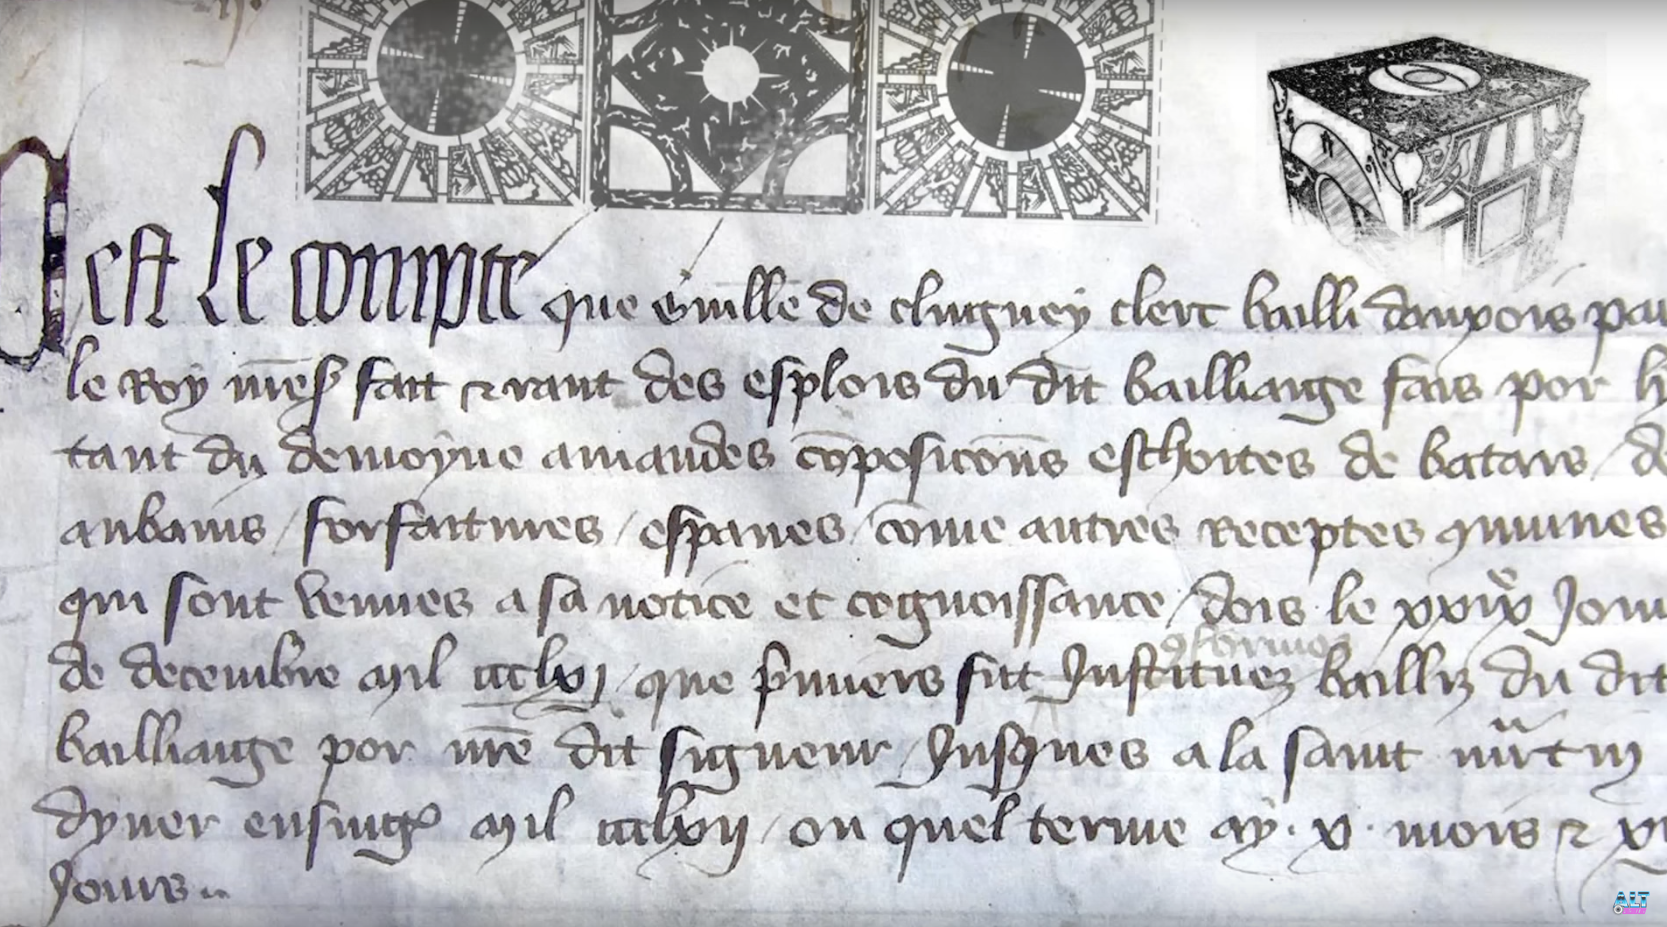 Cest le compte que Guille de clugney clerc bailli dauxois pa
le Roy nre sr fait & rant des esplois du dit bailliaige fais por
tant du demoyne amandes coposicons eschoites de batars / de
aubains / forfaitures / espaves / come autres Receptes
qui sont venues a sa notice et cognoissance / dois le xxixe Jour
de decembre mil ccclxj / que pmiers fut Instituez bailliz du dit
bailliaige por nre dit signeur / Jusques a la saint martin
dyver ensuigt mil ccclxij / ou quel terme ay . x . mois &
Jours
ALT